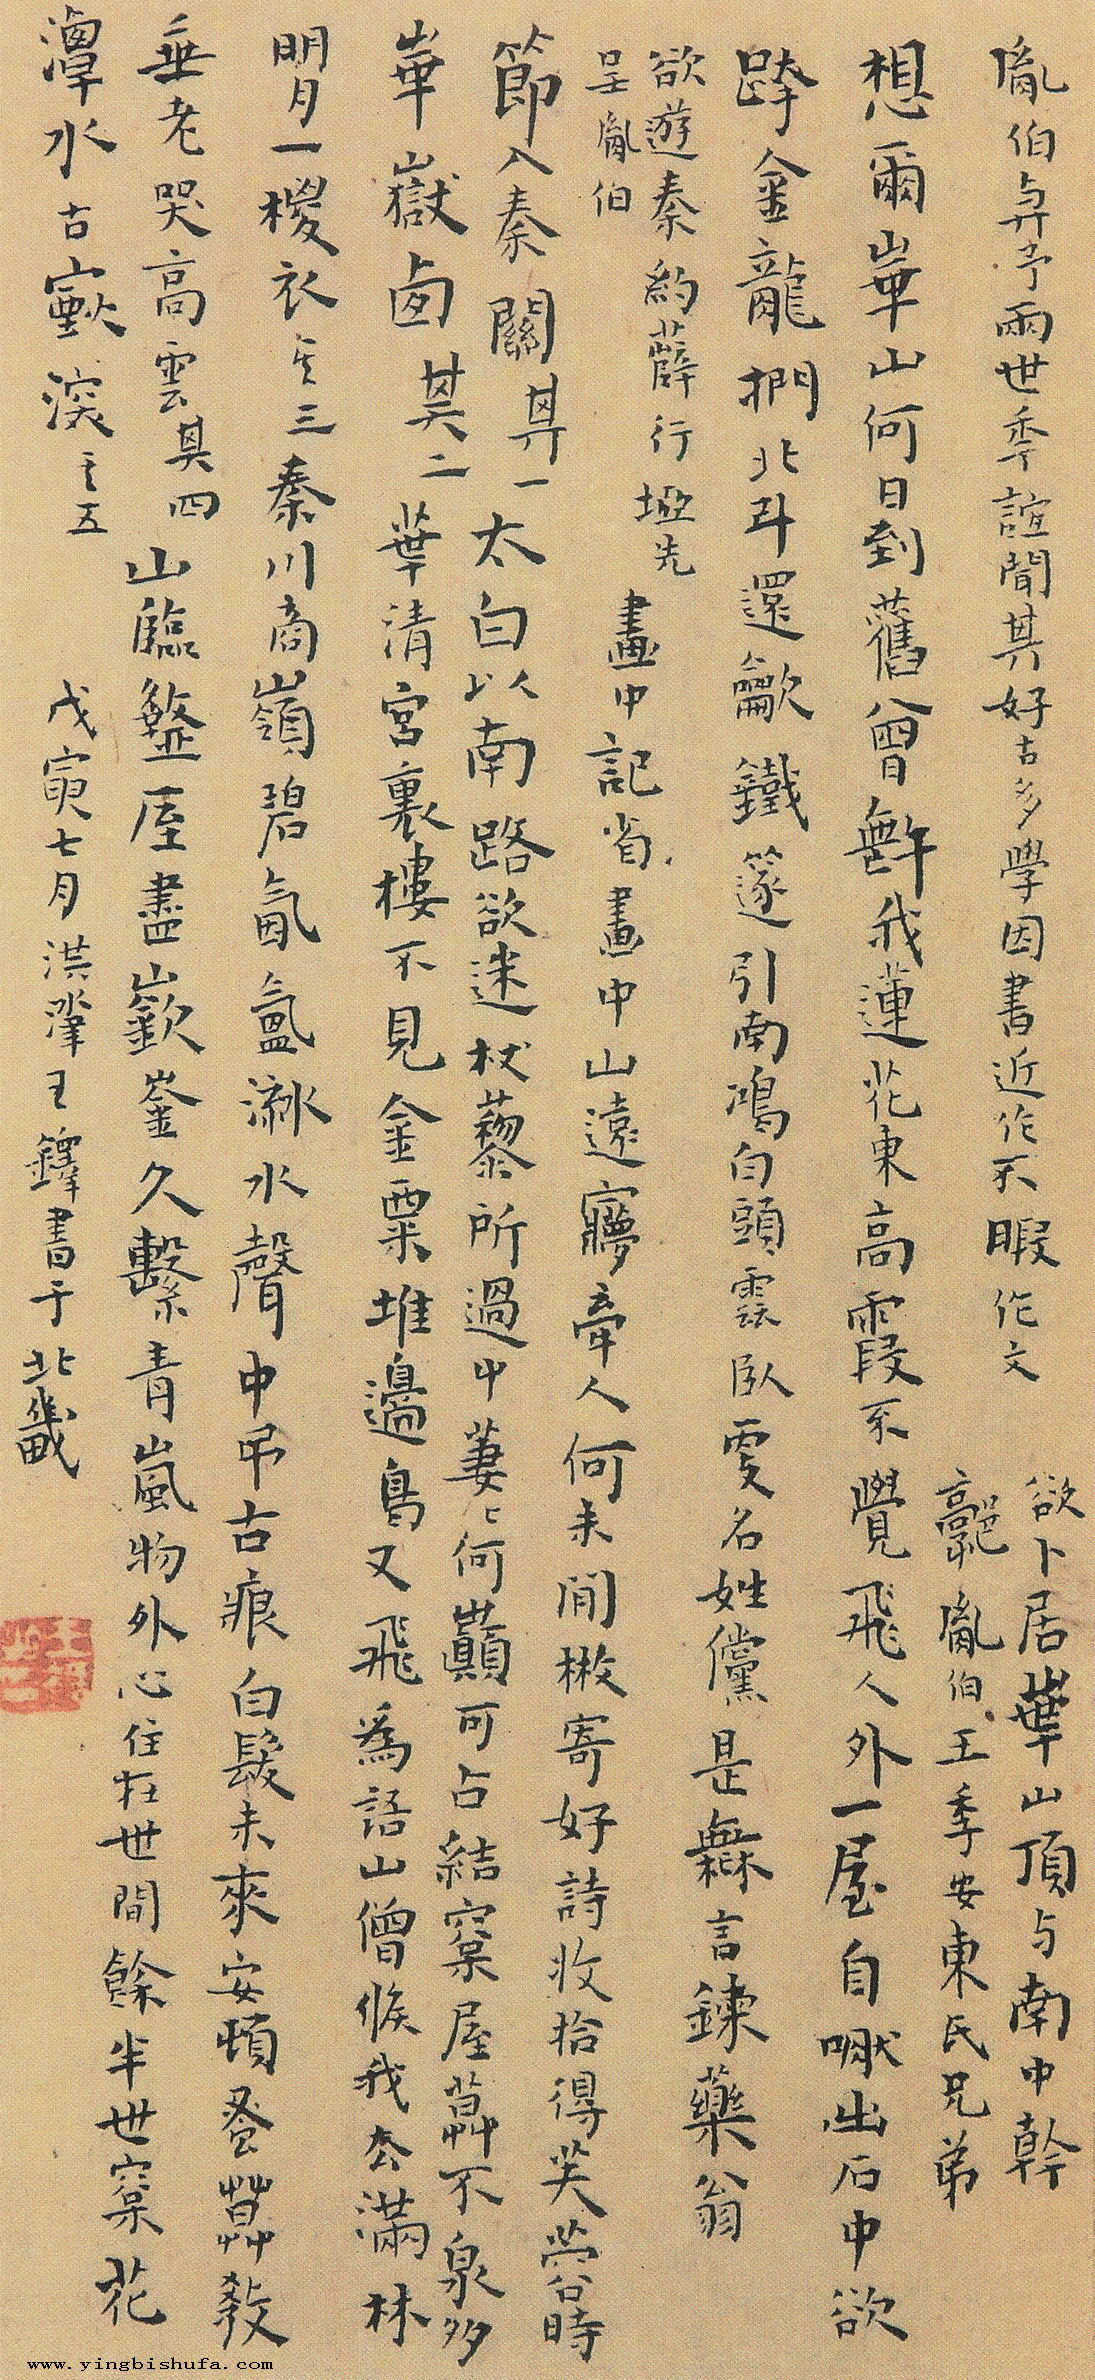 胤伯與予兩世年誼聞其好古多學因書近作不暇作文
欲卜居華山頂与南中幹
郭胤伯王季安東氏兄弟
想爾華山何日到舊曾無許我蓮花東高霞不覺飛人外一屋自嘫出石中欲
跨金龍捫北斗還龡鐵篴引南鴻白頭雲臥更名姓儻是無言鍊藥翁
欲遊秦約薛行塢先
呈胤伯
畫中記省畫中山遠夢牽人何未閒檄寄好詩收拾得芙蓉時
節入秦關其一太白以南路欲迷杖藜所過屮萋萋何巔可占結窠屋葬不泉多
華嶽卤其二華清宮裏樓不見金粟堆邊鳥又飛為語山僧候我去滿林
明月一椶衣其三秦川商嶺碧氤氳潏水聲中弔古痕白髮未來安頓蚤葬教
垂老哭高雲其四山臨盩厔盡嶔崟久繫青嵐物外心住在世間餘半世窠花
潭水古窾深其五
戊寅七月洪肇王鐸書于北畿
www.yingbishufa.com